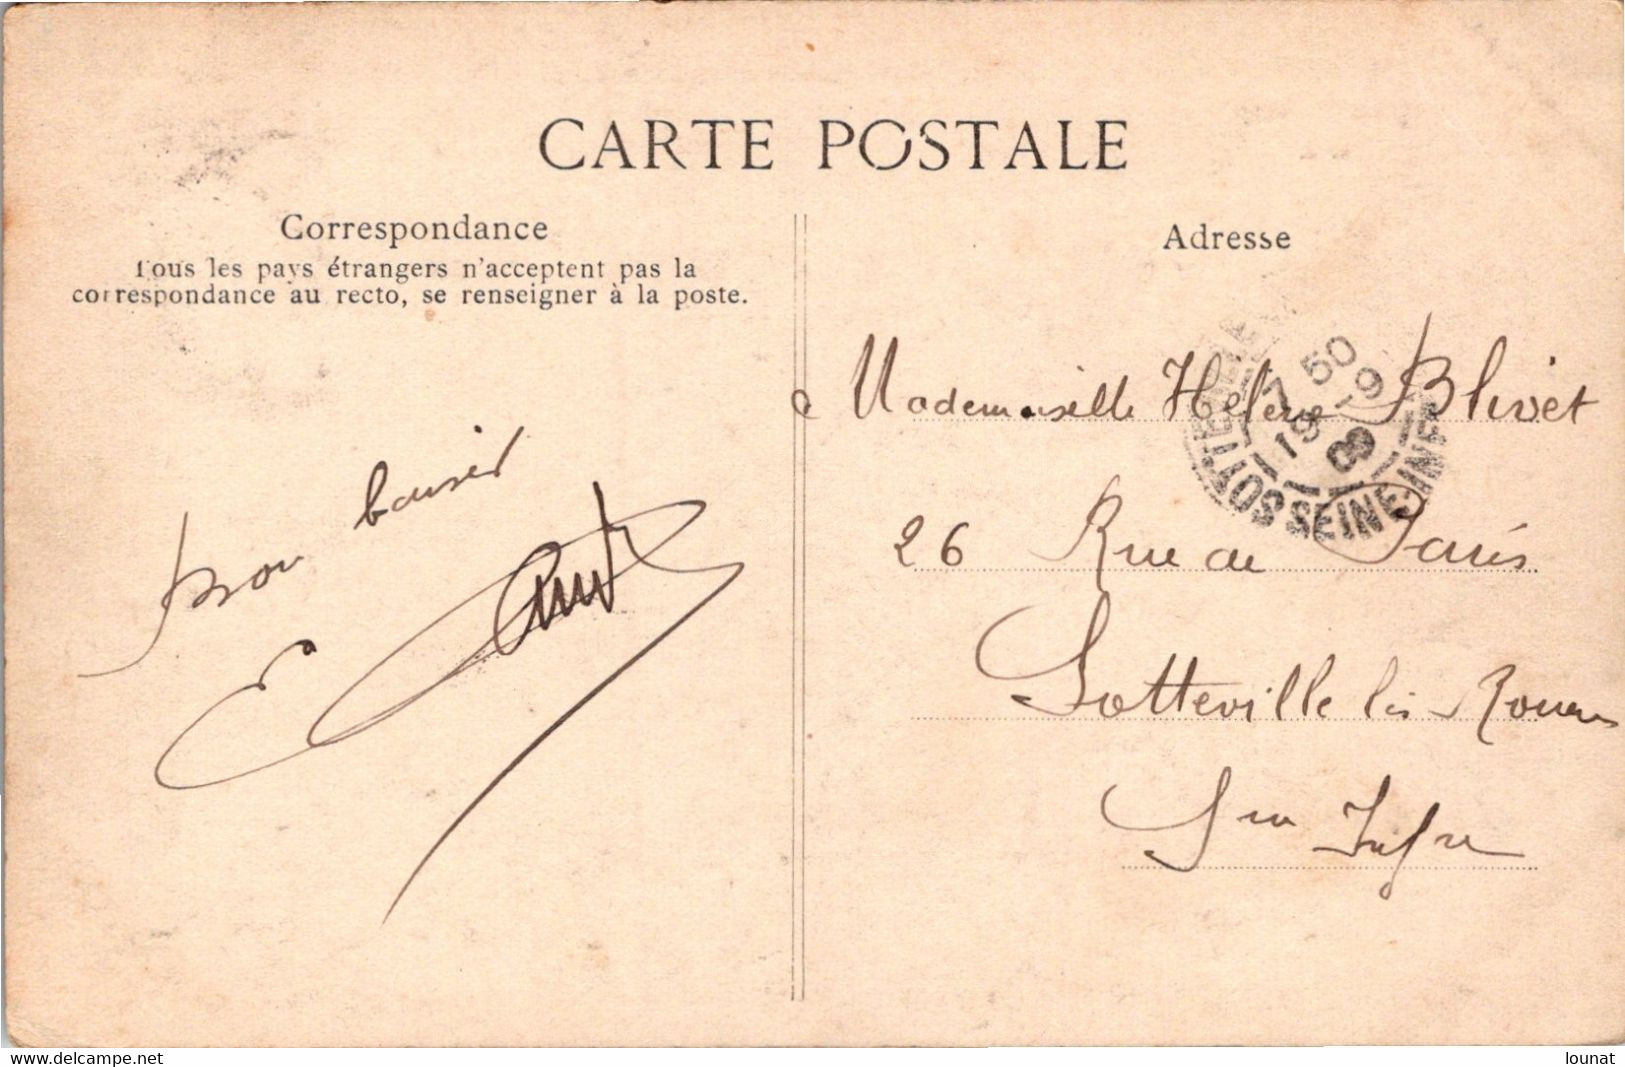 CARTE POSTALE
Correspondance
Tous les pays étrangers n'acceptent pas la
correspondance au recto, se renseigner à la poste.
Bon baiser
Adresse
Mademoiselle Hélène Blivet
26 Rue de Paris
Sotteville lès-Rouen
Sne Infre
7 50
19 -9
09
SEINE-INF
www.delcampe.net
lounat